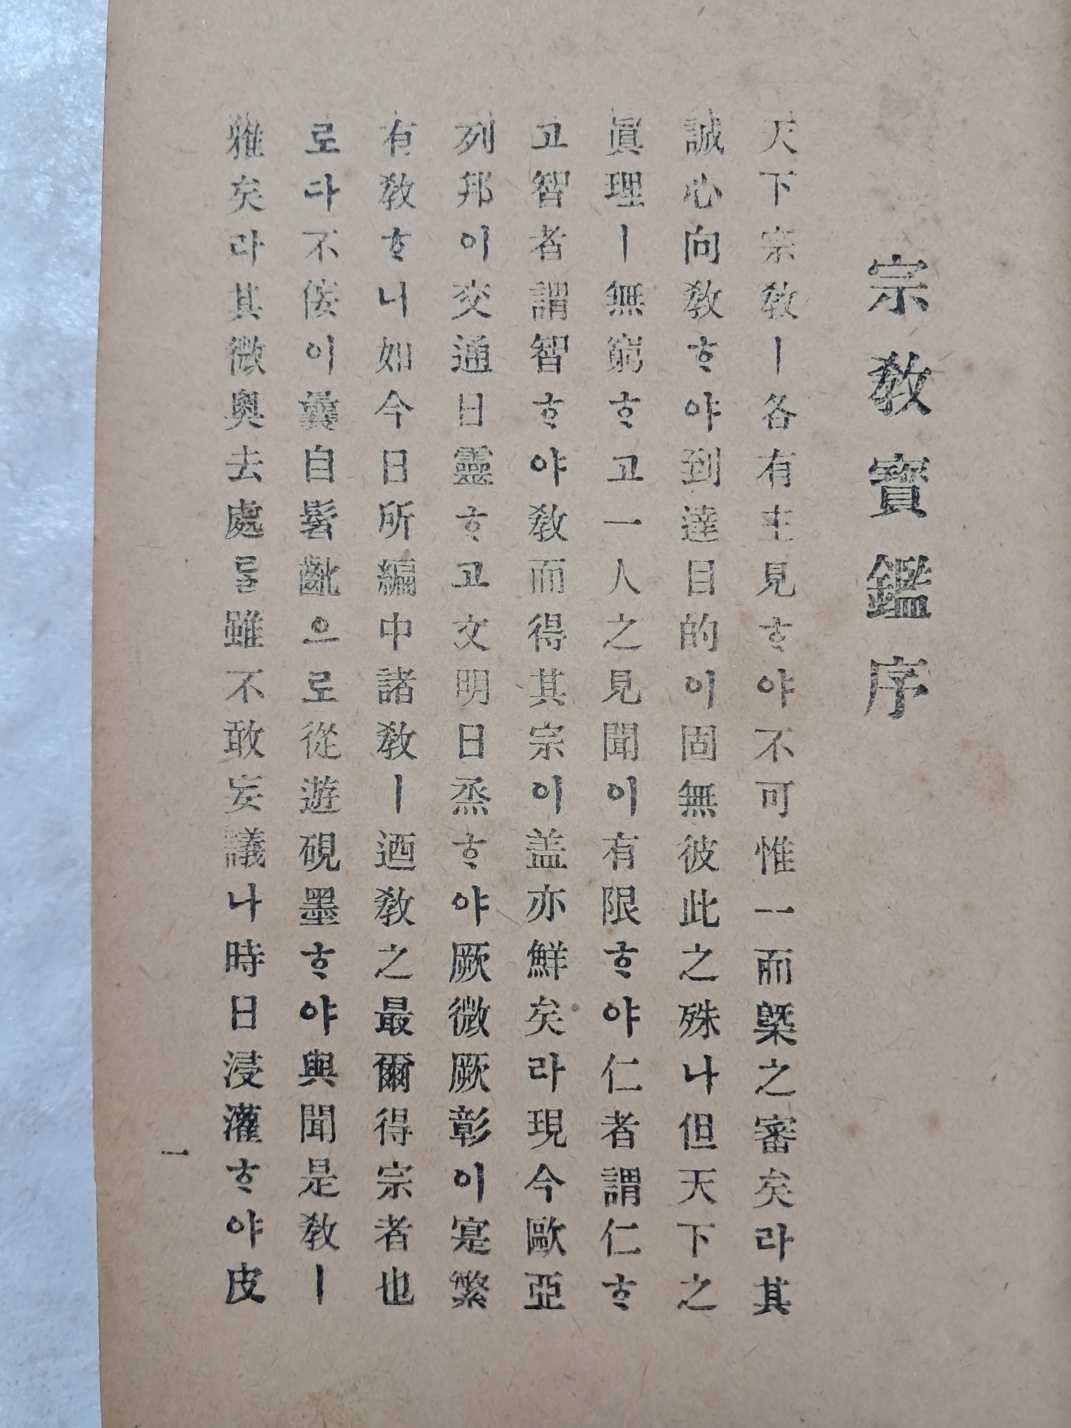 宗敎寶鑑序
天下宗敎ㅣ各有主見ᄒᆞ야不可惟一而槩之審矣라其
誠心向敎ᄒᆞ야到達目的이固無彼此之殊나但天下之
眞理ㅣ無窮ᄒᆞ고一人之見聞이有限ᄒᆞ야仁者謂仁ᄒᆞ
고智者謂智ᄒᆞ야敎而得其宗이盖亦鮮矣라現今歐亞
列邦이交通日靈ᄒᆞ고文明日烝ᄒᆞ야厥微厥彰이寔繁
有敎ᄒᆞ니如今日所編中諸敎ㅣ迺敎之最爾得宗者也
로다不佞이曩自髫齔으로從遊硯墨ᄒᆞ야與聞是敎ㅣ
雅矣라其微奧去處를雖不敢妄議나時日浸灌ᄒᆞ야皮
一